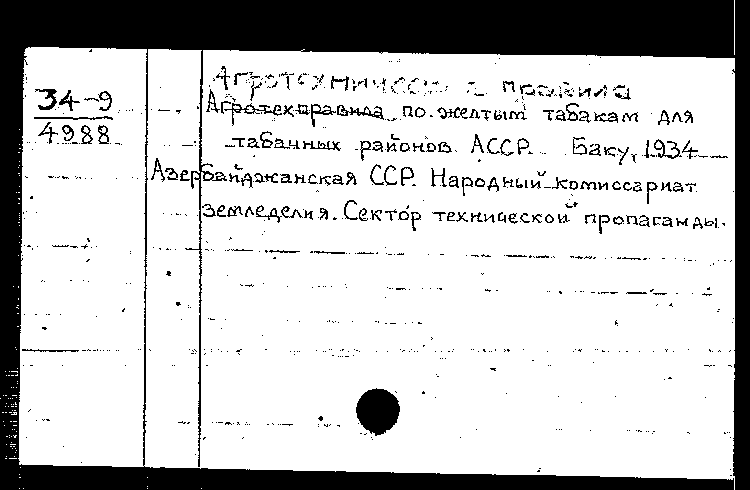 34-9
4988
Агротехнические правила
Агротехправила по желтым табакам для
табачных районов АССР. Баку, 1934
Азербайджанская ССР. Народный комиссариат
земледелия. Сектор технической пропаганды.